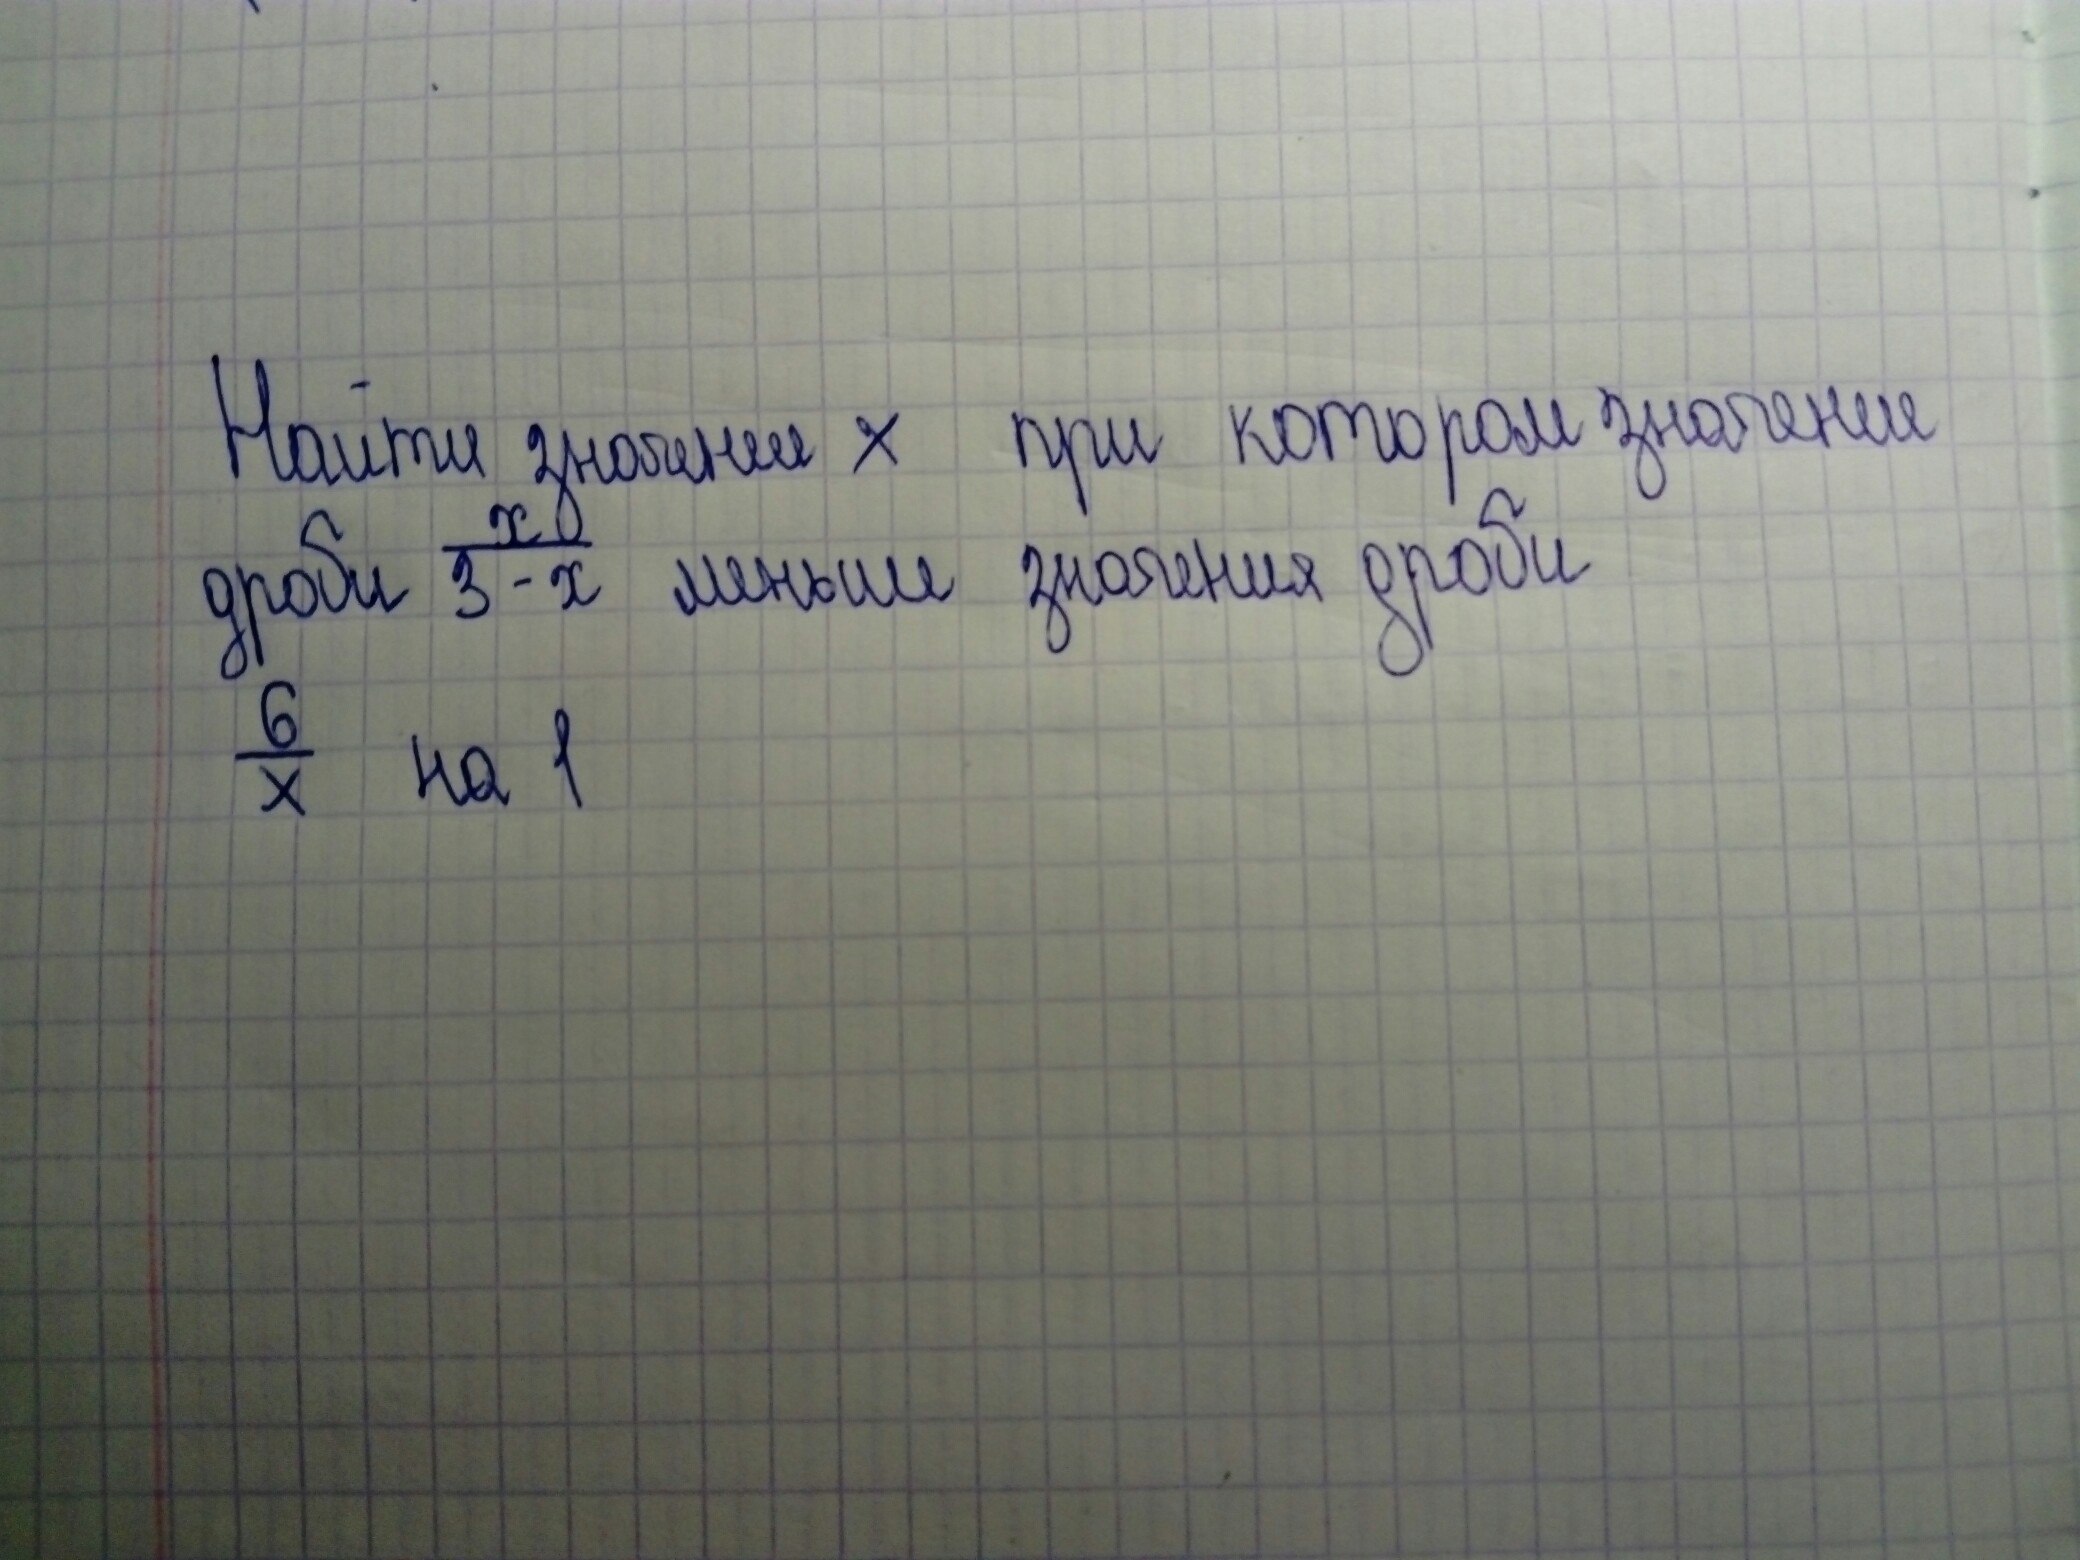 Найти значение x при котором значение
дроби x/(3-x) меньше значения дроби
6/x на 1